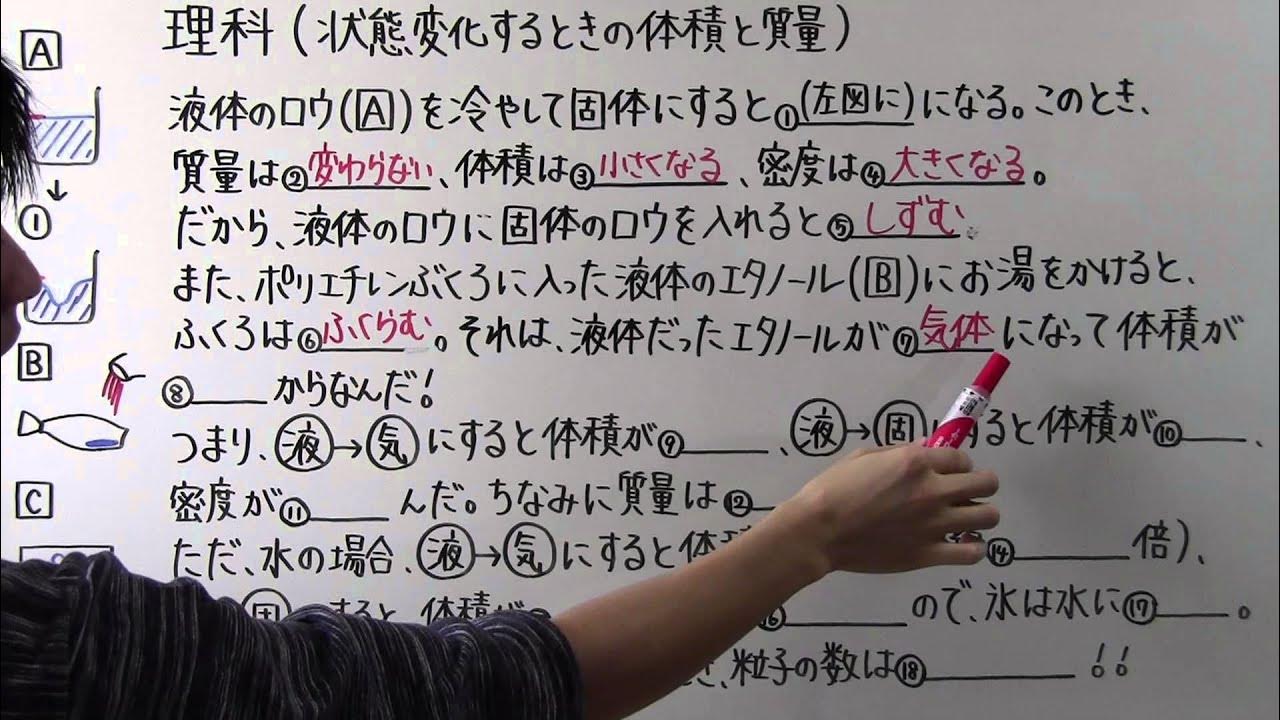 理科(状態変化するときの体積と質量)
A
液体のロウ(A)を冷やして固体にすると①(左図に)になる。このとき、
質量は②変わらない、体積は③小さくなる、密度は④大きくなる。
①
だから、液体のロウに固体のロウを入れると⑤しずむ。
また、ポリエチレンぶくろに入った液体のエタノール(B)にお湯をかけると、
ふくろは⑥ふくらむ。それは、液体だったエタノールが⑦気体になって体積が
B
⑧ からなんだ!
つまり、液→気にすると体積が⑨ 、液→固 すると体積が⑩ 、
C
密度が⑪ んだ。ちなみに質量は⑫
ただ、水の場合、液→気にすると体積 ⑭ 倍)、
すると、体積が ⑯ ので、氷は水に⑰ 。
粒子の数は⑱ !!